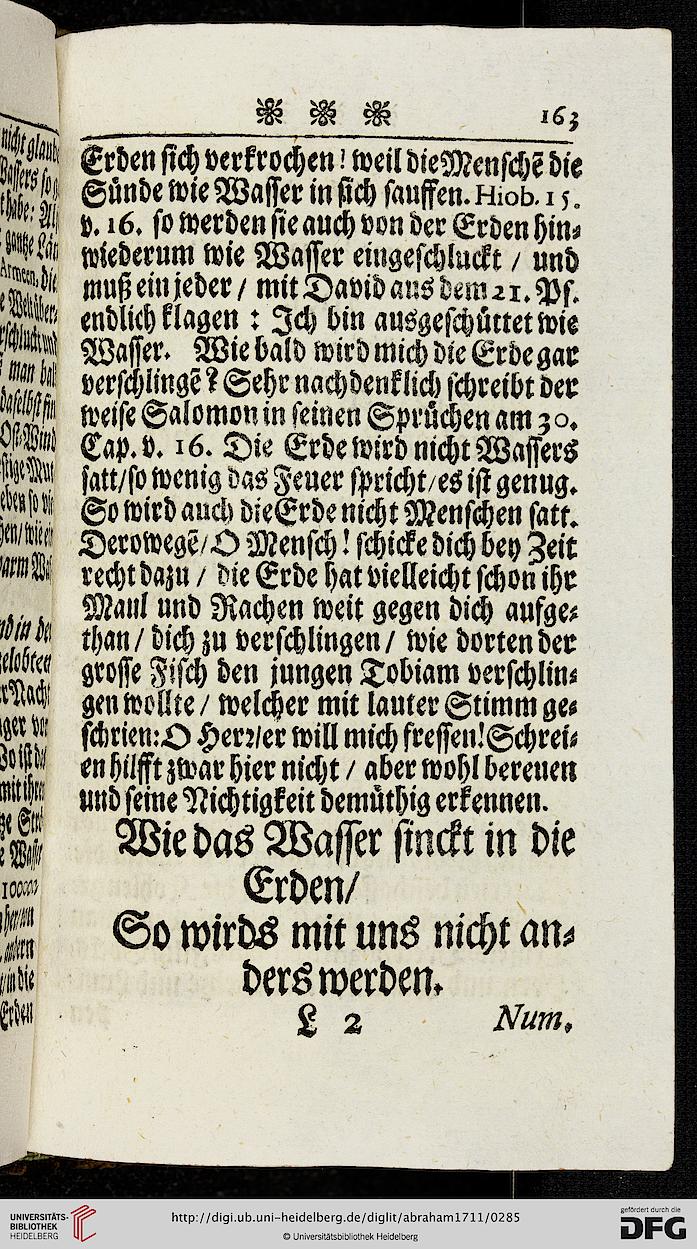 163
Erden sich verkrochen! weil die Menschē die
Sünde wie Wasser in sich sauffen. Hiob. 15.
v. 16. so werden sie auch von der Erden hin⸗
wiederum wie Wasser eingeschluckt / und
muß ein jeder / mit David aus dem 21. Ps.
endlich klagen : Ich bin ausgeschüttet wie
Wasser. Wie bald wird mich die Erde gar
verschlingē? Sehr nachdenklich schreibt der
weise Salomon in seinen Sprüchen am 30.
Cap. v. 16. Die Erde wird nicht Wassers
satt/ so wenig das Feuer spricht / es ist genug.
So wird auch die Erde nicht Menschen satt.
Derowegē/ O Mensch! schicke dich bey Zeit
recht dazu / die Erde hat vielleicht schon ihr
Maul und Rachen weit gegen dich aufge⸗
than / dich zu verschlingen / wie dorten der
grosse Fisch den jungen Tobiam verschlin⸗
gen wollte / welcher mit lauter Stimm ge⸗
schrien: O Herr/ er will mich fressen! Schrei⸗
en hilfft zwar hier nicht / aber wohl bereuen
und seine Nichtigkeit demüthig erkennen.
Wie das Wasser sinckt in die
Erden/
So wirds mit uns nicht an⸗
ders werden.
L 2 Num.
nicht glaub
Wassers so
t habe:
gantze
die
man
daselbst
Ost-Wind
eben so
hen/ wie
warm
nd in
Nacht
So ist
mit ihre
100000
in die
Erden
UNIVERSITÄTS-
BIBLIOTHEK
HEIDELBERG
http://digi.ub.uni-heidelberg.de/diglit/abraham1711/0285
© Universitätsbibliothek Heidelberg
gefördert durch die
DFG